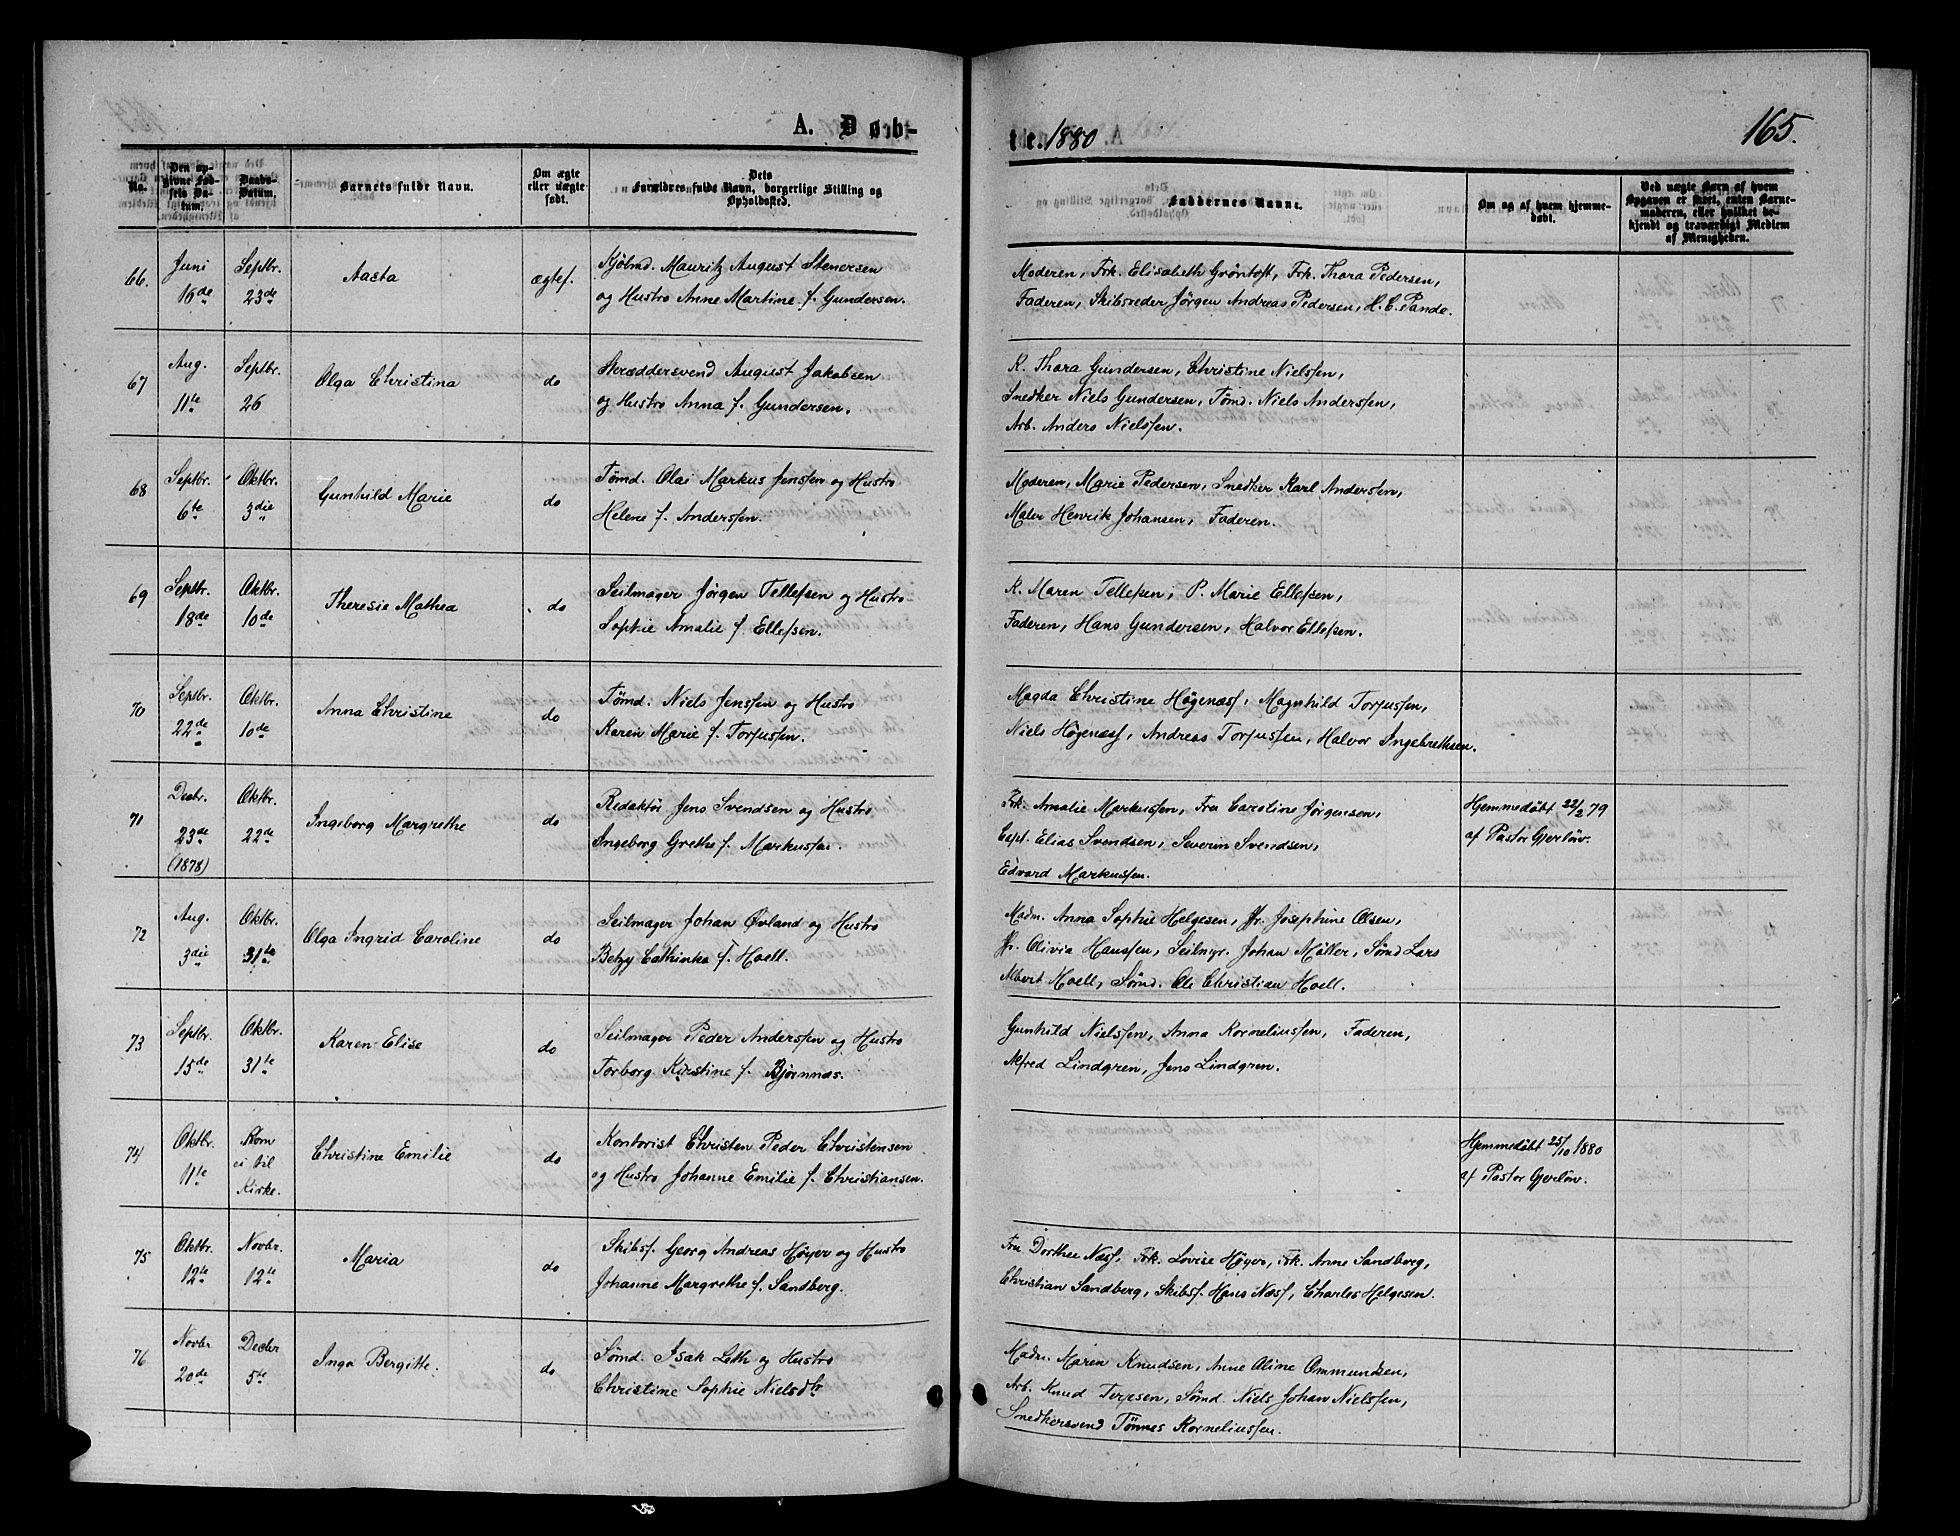 A. Døb-
te. 1880
165.
No.
Den opgivne Fødsels Datum.
Daabs-Datum.
Barnets fulde Navn.
Om ægte eller uægte født.
Dets Forældres fulde Navn, borgerlige Stilling og Opholdssted.
Faddernes Navne.
Om og af hvem hjemmedøbt.
Ved uægte Børn af hvem Opgaven er skeet, enten Barnemoderen, eller hvilket bekjendt og troværdigt Medlem af Menigheden.
66.
Juni
16de
Septbr.
23de
Aasta
ægtef.
Kjöbmd. Mauritz August Stenersen
og Hustro Anne Martine f. Gundersen.
Moderen, Frk. Elisabeth Gröntoft, Frk. Thora Pedersen,
Faderen, Skibsreder Jörgen Andreas Pedersen, H. C. Pande.
67
Aug.
11te
Septbr.
26
Olga Christina
do
Skræddersvend August Jakobsen
og Hustro Anna f. Gundersen.
K. Thora Gundersen, Christine Nielsen,
Snedker Niels Gundersen, Tömd. Niels Anderssen,
Arb. Anders Nielssen.
68
Septbr.
6te
Oktbr.
3die
Gunhild Marie
do
Tömd. Olai Markus Jenssen og Hustro
Helene f. Anderssen.
Moderen, Marie Pedersen, Snedker Karl Anderssen,
Maler Henrik Johansen, Faderen.
69
Septbr.
18de
Oktbr.
10de
Theresie Mathea
do
Seilmager Jörgen Tellefsen og Hustro
Sophie Amalie f. Ellefsen.
K. Maren Tellefsen, P. Marie Ellefsen,
Faderen, Hans Gundersen, Halvor Ellefsen.
70
Septbr.
22de
Oktbr.
10de
Anna Christine
do
Tömd. Niels Jenssen og Hustro
Karen Marie f. Torjussen.
Magda Christine Högenæss, Magnhild Torjussen,
Niels Högenæss, Andreas Torjussen, Halvor Ingebrethsen.
71
Decbr.
23de
(1878)
Oktbr.
22de
Ingeborg Margrethe
do
Redaktør Jens Svendsen og Hustro
Ingeborg Grethe f. Markussen.
Frk. Amalie Markussen, Fru Caroline Jörgensen,
Capt. Elias Svendsen, Severin Svendsen,
Edvard Markussen.
Hjemmedöbt 22/2 79
af Pastor Gjerlöw.
72
Aug.
3die
Oktbr.
31te
Olga Ingrid Caroline
do
Seilmager Johan Øvland og Hustro
Betzy Cathinka f. Hoell.
Madm. Anna Sophie Helgesen, Jfr. Josephine Olsen,
Jfr. Olivia Hanssen, Seilmgr. Johan Møller, Sømd Lars
Albert Hoell, Sømd. Ole Christian Hoell.
73
Septbr.
15de
Oktbr.
31te
Karen Elise
do
Seilmager Peder Anderssen og Hustro
Torborg Kirstine f. Bjørnnæs.
Gunhild Nielssen, Anna Korneliussen, Faderen,
Alfred Lindgren, Jens Lindgren.
74
Oktbr.
11te
Kom
ei til
Kirke.
Christine Emilie
do
Kontorist Christen Peder Christensen
og Hustro Johanne Emilie f. Christiansen.
Hjemmedöbt 25/10 1880
af Pastor Gjerlöw.
75
Oktbr.
12te
Novbr.
12te
Maria
do
Skibsf. Georg Andreas Høyer og Hustro
Johanne Margrethe f. Sandberg.
Fru Dorthee Næss, Frk. Lovise Høyer, Frk. Anne Sandberg,
Christian Sandberg, Skibsf. Hans Næss, Charles Helgesen.
76
Novbr
20de
Decbr
5te
Inga Bergitte.
do
Sömd. Isak Leth og Hustro
Christine Sophie Nielsdtr
Madm. Maren Knudsen, Anne Oline Ommundsen,
Arb. Knud Terjesen, Sömd. Niels Johan Nielssen,
Snedkersvend Tönnes Korneliussen.